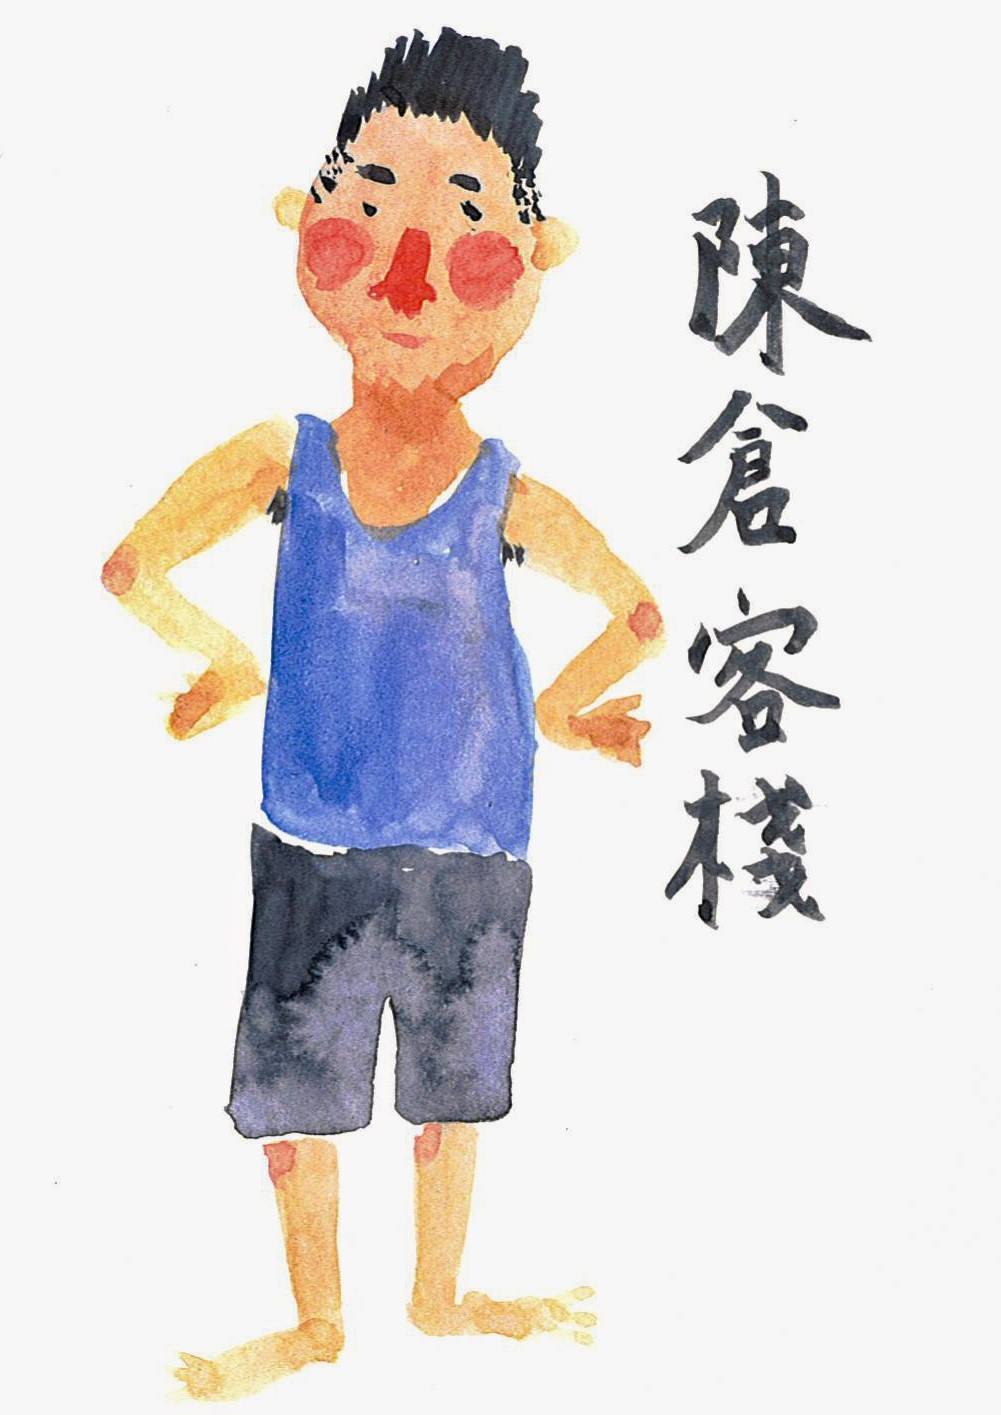 陳倉客棧